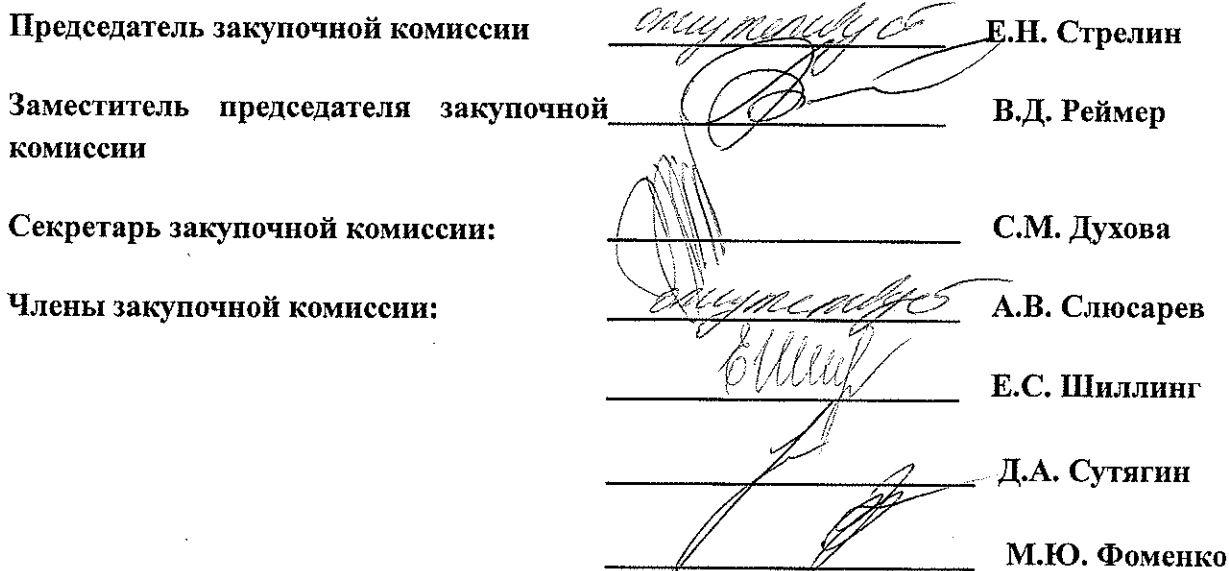 Председатель закупочной комиссии отсутствует Е.Н. Стрелин
Заместитель председателя закупочной В.Д. Реймер
комиссии
Секретарь закупочной комиссии: С.М. Духова
Члены закупочной комиссии: отсутствует А.В. Слюсарев
Е.С. Шиллинг
Д.А. Сутягин
М.Ю. Фоменко